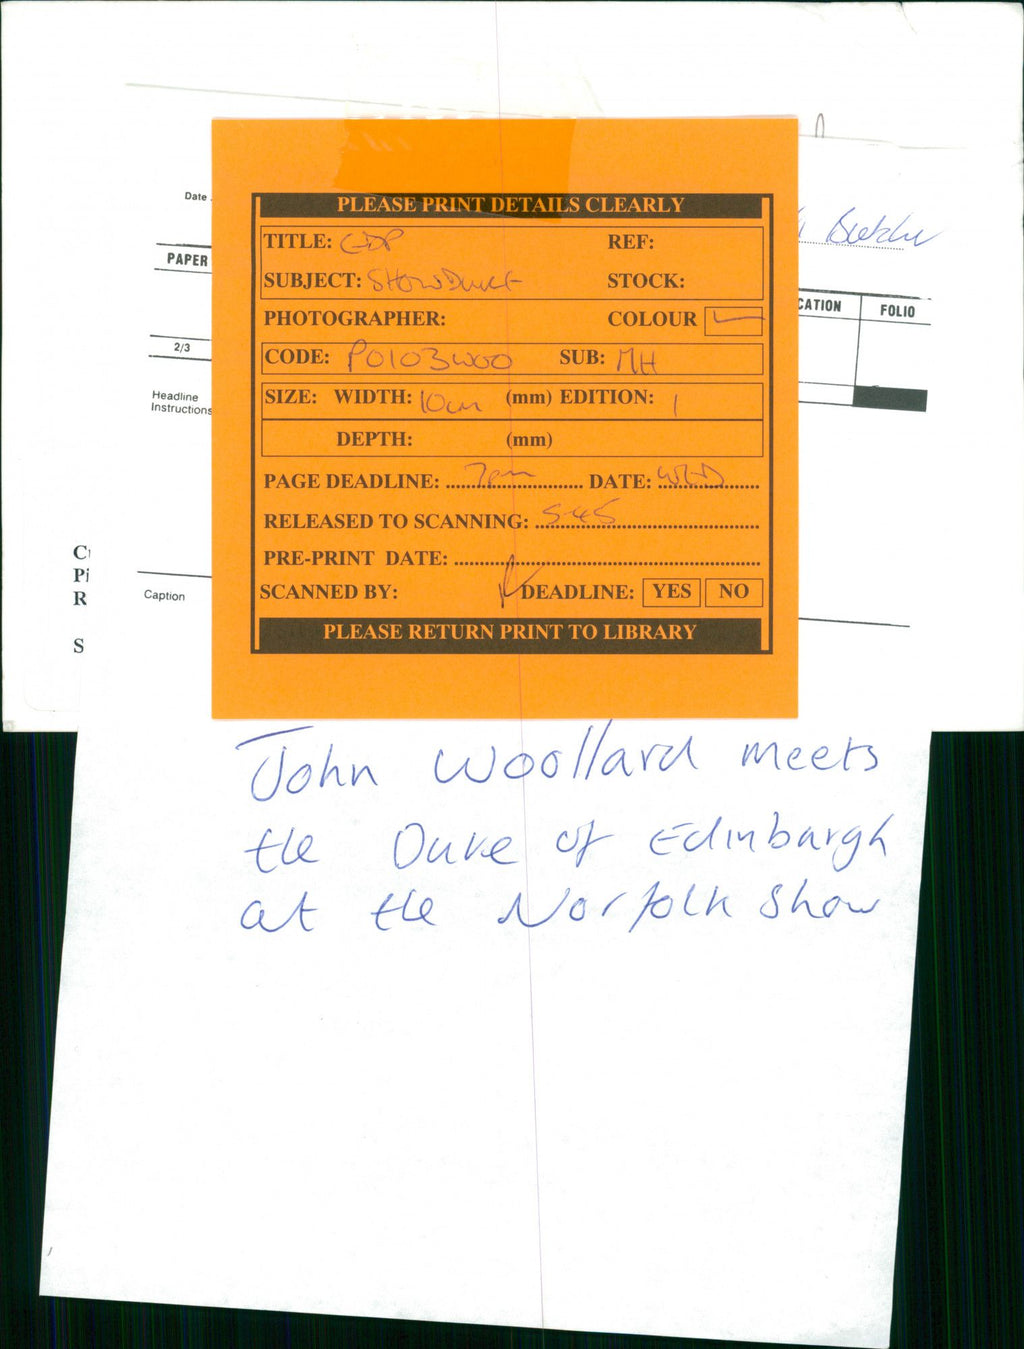 Date
PAPER
2/3
Headline
Instructions
CATION
FOLIO
Pi
R
S
Caption
PLEASE PRINT DETAILS CLEARLY
TITLE: EDP REF:
SUBJECT: SHOW DUKE STOCK:
PHOTOGRAPHER: COLOUR
CODE: P0103WOO SUB: MH
SIZE: WIDTH: 10cm (mm) EDITION: 1
DEPTH: (mm)
PAGE DEADLINE: 7pm DATE: WED
RELEASED TO SCANNING: 5-45
PRE-PRINT DATE:
SCANNED BY: DEADLINE: YES NO
PLEASE RETURN PRINT TO LIBRARY
John Woollard meets
the Duke of Edinburgh
at the Norfolk Show